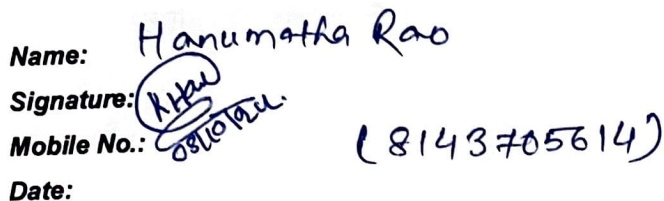 Name: Hanumatha Rao
Signature:
Mobile No.: (8143705614)
Date: